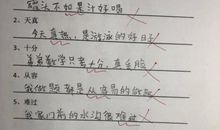 不如是汁好喝
2、天真
今天真热，是游泳的好日子
3、十分
弟弟数学只考十分，真丢脸
4、从容
我做题都是从容易的做起
5、难过
我家门前的水沟很难过